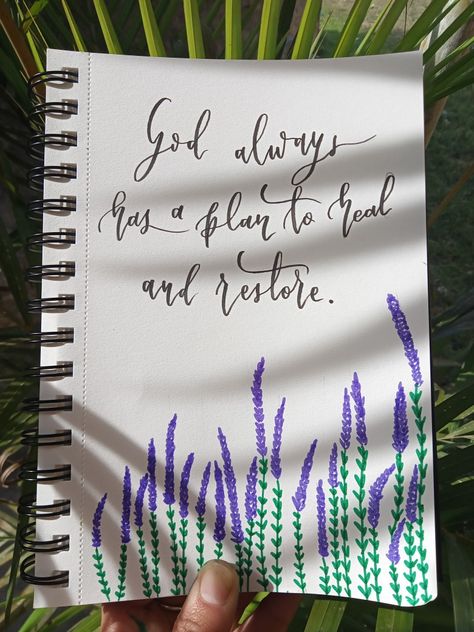 God always
has a plan to heal
and restore.